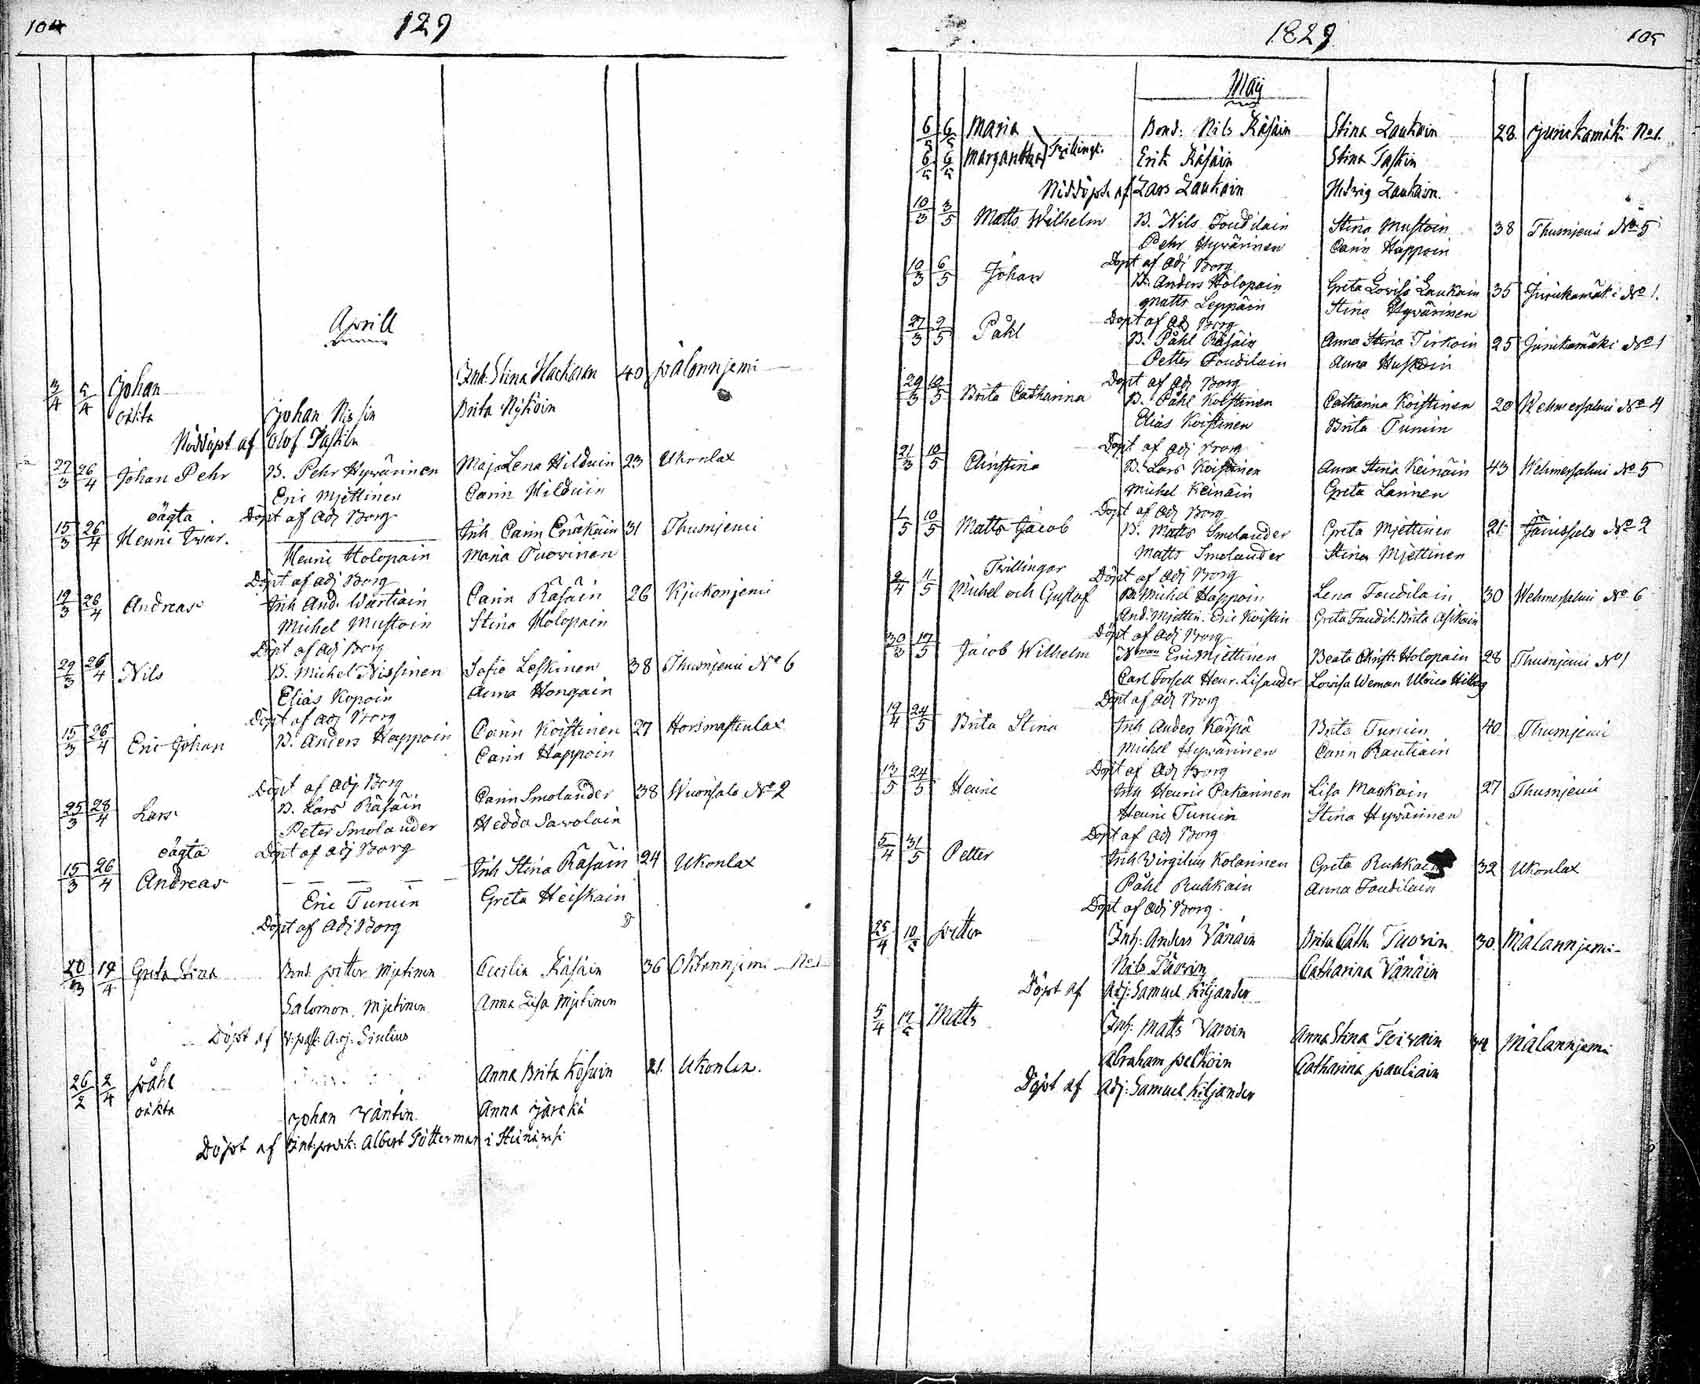 104
129
Aprill
3/4 5/4 Johan Inh. Stina Hackman 40 Pälonnjemi
oäkta Johan Nissin Brita Nykoin
Nöddöpt af Olof Taskin
22/3 26/4 Johan Pehr B. Pehr Hyvärinen Maja Lena Hilduin 23 Ukonlax
Eric Mjettinen Carin Hilduin
oägta Döpt af Adj Borg
15/3 26/4 Henric Ivar. Inh Carin Eräkäin 31 Thusnjemi
Henric Holopain Maria Puovinen
Döpt af adj Borg
19/3 26/4 Andreas Inh And. Wartiain Carin Räsäin 26 Kjukonjemi
Michel Mustoin Stina Holopain
Döpt af adj Borg
29/3 26/4 Nils B. Michel Nissinen Sofia Leskinen 38 Thusnjemi No 6
Elias Kopoin Anna Hongain
Döpt af adj Borg
15/3 26/4 Eric Johan B. Anders Happoin Carin Koistinen 27 Horsmastenlax
Carin Happoin
Döpt af adj Borg
25/3 28/4 Lars B. Lars Räsäin Carin Smolander 38 Wuorisalo No 2
Peter Smolander Hedda Savolain
oägta Döpt af adj Borg
15/3 26/4 Andreas Inh Stina Räsäin 24 Ukonlax
Eric Turuin Greta Heiskain
Döpt af Adj Borg
20/3 19/4 Greta Stina Bond. Petter Mjetinen Cecilia Räsäin 36 No 1
Salomon Mjetinen Anna Lisa Mjetinen
Döpt af v:past: Adj:
26/2 2/4 Påhl Anna Brita Kosuin 21 Ukonlax.
oäkta Johan Väntin Anna
Döpt af Albert i
1829
105
Maij
6/5 6/5 Maria Bond: Nils Räsäin Stina Laukain 28 Jurikamäki No 1.
6/5 6/5 Margaretha Tvillingr. Erik Räsäin Stina Taskin
Nöddöpte af Lars Laukain Hedvig Laukain.
10/3 3/5 Matts Wilhelm B. Nils Toudilain Stina Mustoin 38 Thusnjemi No 5
Pehr Hyvärinen Carin Happoin
Döpt af Adj Borg
10/3 6/5 Johan B. Anders Holopain Greta Lovisa Laukain 35 Jurikamäki No 1.
Matts Leppäin Stina Hyvärinen
Döpt af Adj Borg
27/3 9/5 Påhl B. Påhl Räsäin Anna Stina Tirkoin 25 Jurikamäki No 1
Petter Toudilain Anna Huskoin
Döpt af Adj Borg
29/3 10/5 Brita Catharina B. Påhl Koistinen Catharina Koistinen 20 Wehmersalmi No 4
Elias Koistinen Brita Turuin
Döpt af Adj Borg
21/3 10/5 Christina B. Lars Koistinen Anna Stina Keinäin 43 Wehmersalmi No 5
Michel Keinäin Greta Lannen
Döpt af Adj Borg
1/5 10/5 Matts Jacob B. Matts Smolander Greta Mjettinen 21 Jänissalo No 2
Matts Smolander Stina Mjettinen
Tvillingar Döpt af Adj Borg
2/4 11/5 Michel och Gustaf B. Michel Happoin Lena Toudilain 30 Wehmersalmi No 6
And. Mjettin. Eric Koistin Greta Toudil. Brita Asikain
Döpt af Adj Borg
30/3 17/5 Jacob Wilhelm Eric Mjettinen Beata Christ. Holopain 28 Thusnjemi No 1
Carl Forsell Henr. Lisander Lovisa Weman Ulrica
Döpt af Adj Borg
19/4 24/5 Brita Stina Inh Anders Karppa Brita Turuin 40 Thusnjemi
Michel Hyvärinen Carin Rautiain
Döpt af Adj Borg
13/5 24/5 Henric Inh Henric Pakarinen Lisa Maukain 27 Thusnjemi
Henric Turuin Stina Hyvärinen
Döpt af Adj Borg
5/4 31/5 Petter Inh Virgilius Kolarinen Greta Ruhkain 32 Ukonlax
Påhl Ruhkain Anna Toudilain
Döpt af Adj Borg.
25/4 10/5 Petter Inh: Anders Vänäin Brita Cath. Tuovin 30. Mälannjemi
Nils Tuovin Catharina Vänäin
Döpt af Adj: Samuel Kiljander
5/4 17/5 Matts Inh: Matts Varvin Anna Stina Teivain 34 Mälannjemi
Abraham Pelkoin Catharina Pauliain
Döpt af Adj: Samuel Kiljander